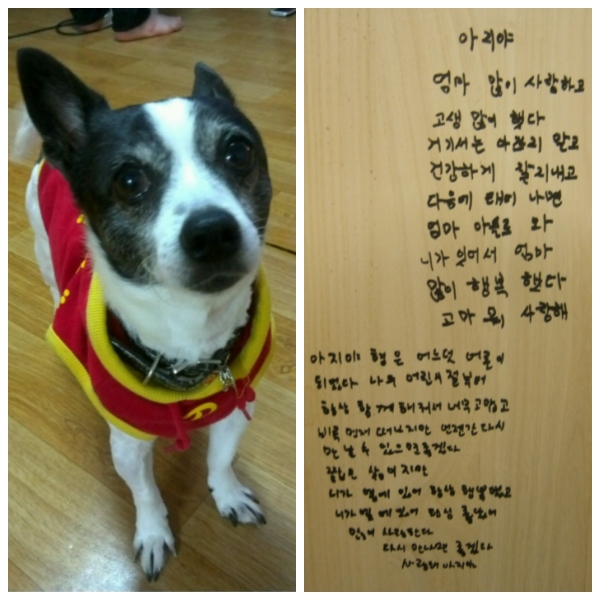 아지야
엄마 많이 사랑하고
고생 많이 했다
거기서는 아프지 말고
건강하게 잘지내고
다음에 태어 나면
엄마 아들로 와
니가 있어서 엄마
많이 행복 했다
고마 워 사랑해
아지야 형은 어느덧 어른이
되었다 나의 어린시절부터
항상 함께 해줘서 너무 고맙고
비록 멀리 떠나지만 언젠간 다시
만날 수 있으면 좋겠다
짧은 삶이지만
니가 옆에 있어 항상 행복했고
니가 옆에 있어 항상
사랑한다
다시 만나면 좋겠다
사랑해 아지야